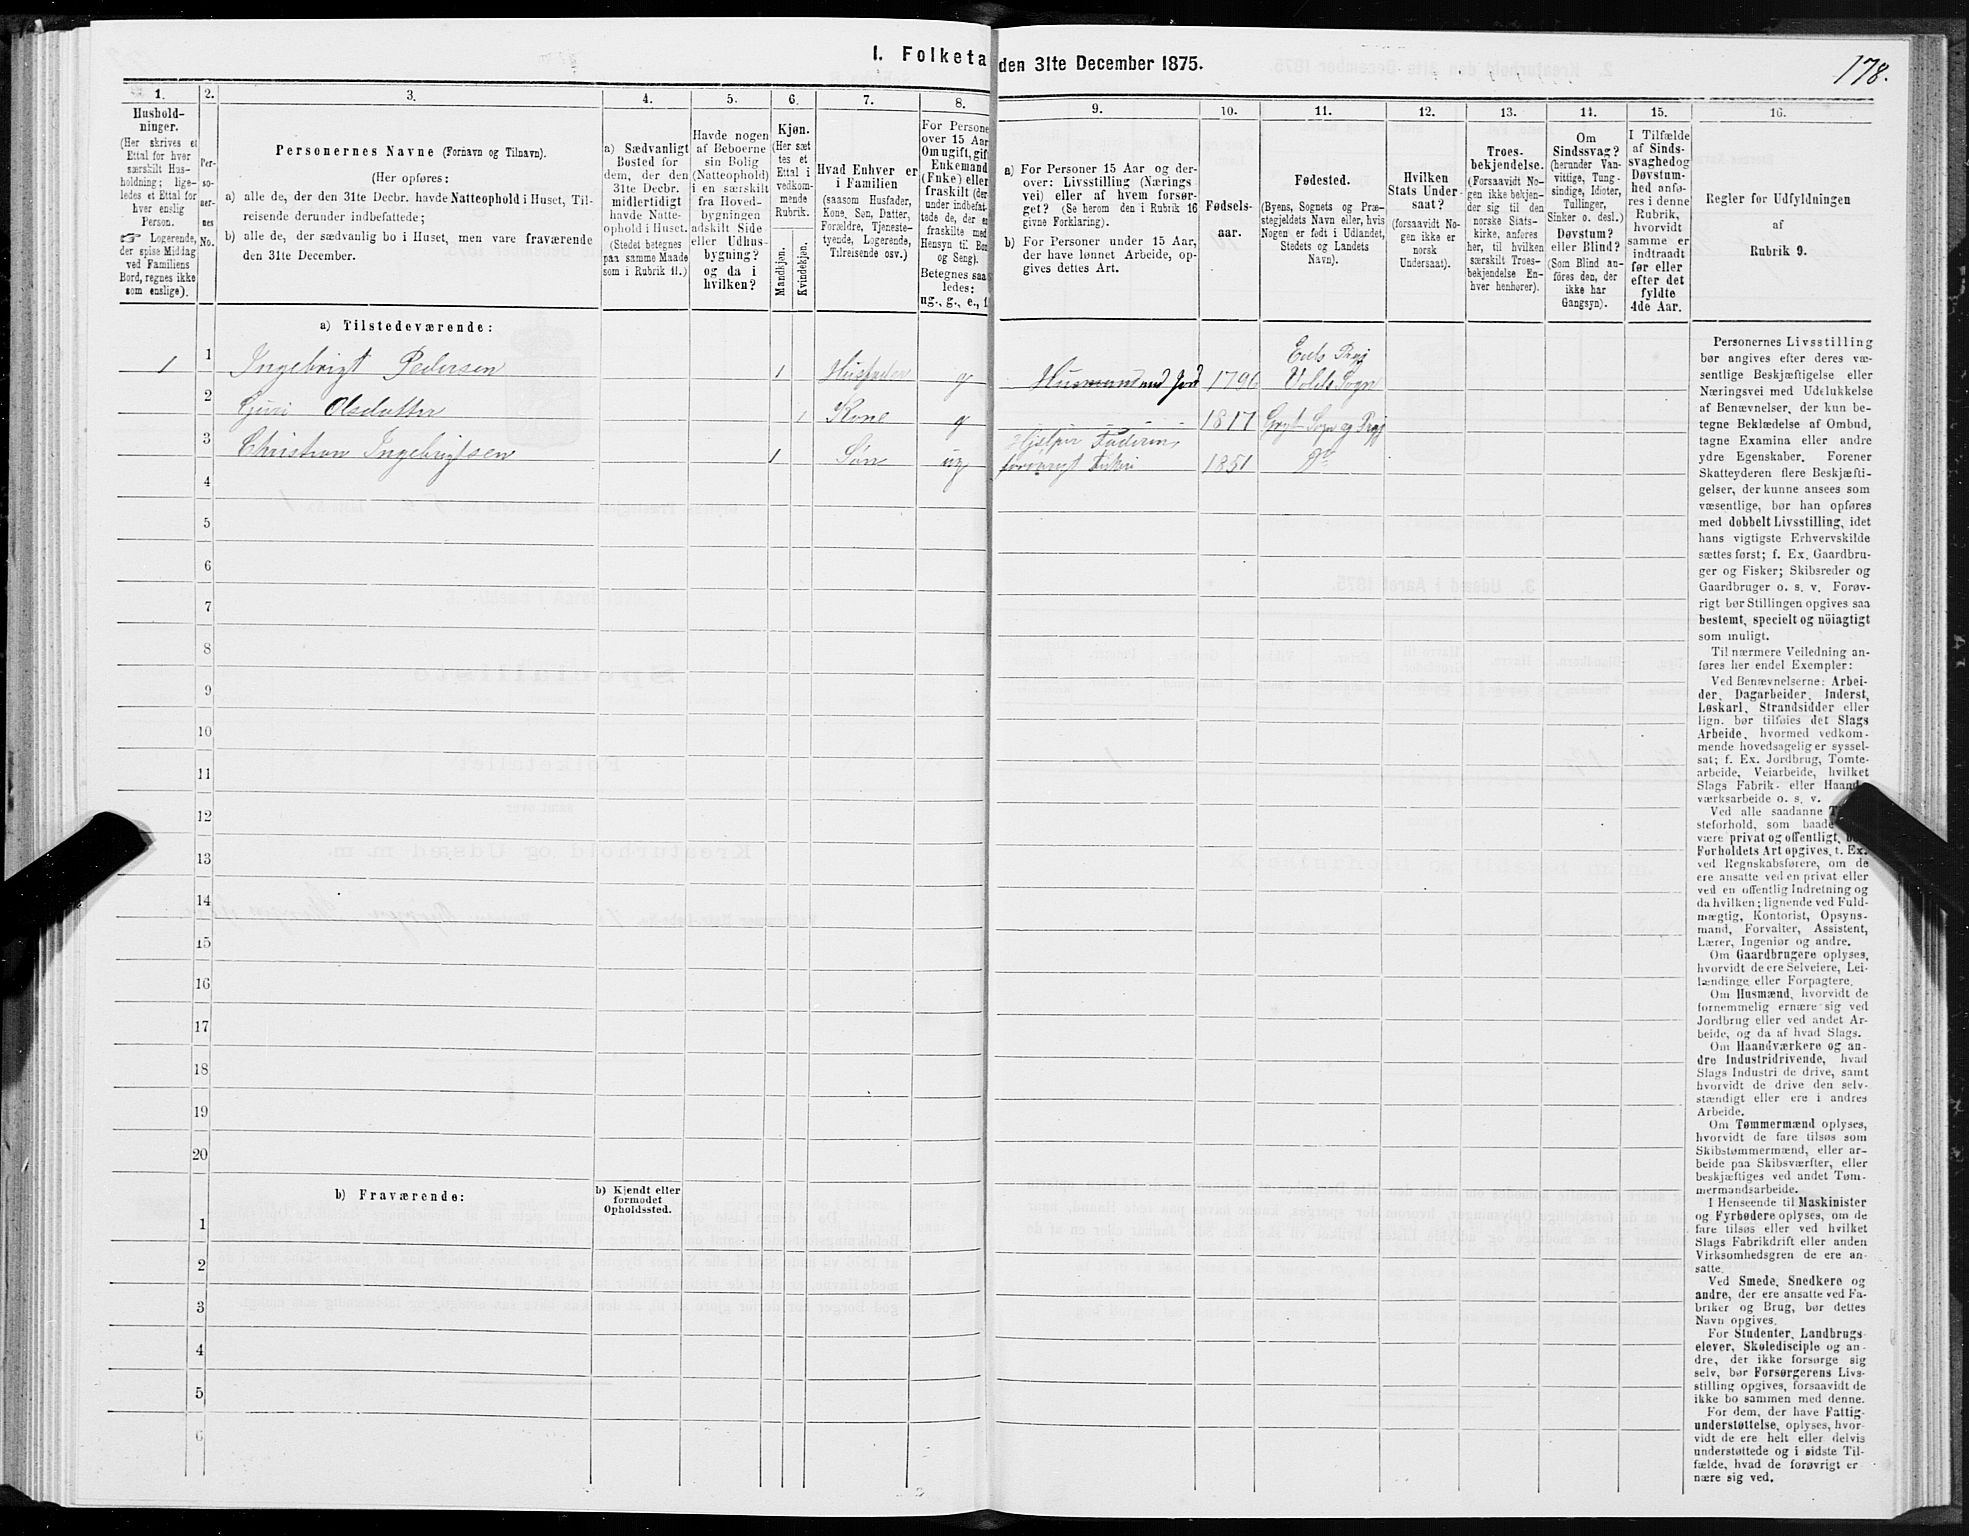 I. Folketa den 31te December 1875.
178.
1.
Hushold-
ninger.
(Her skrives et
Ettal for hver
særskilt Hus-
holdning; lige-
ledes et Ettal for
hver enslig
Person.
☞ Logerende,
der spise Middag
ved Familiens
Bord, regnes ikke
som enslige).
2.
Per-
so-
ner-
nes
No.
3.
Personernes Navne (Fornavn og Tilnavn).
(Her opføres:
a) alle de, der den 31te Decbr. havde Natteophold i Huset, Til-
reisende derunder indbefattede;
b) alle de, der sædvanlig bo i Huset, men vare fraværende
den 31te December.
4.
a) Sædvanligt
Bosted for
dem, der den
31te Decbr.
midlertidigt
havde Natte-
ophold i Huset.
(Stedet betegnes
paa samme Maade
som i Rubrik 11.)
5.
Havde nogen
af Beboerne
sin Bolig
(Natteophold)
i en særskilt
fra Hoved-
bygningen
adskilt Side
eller Udhus-
bygning?
og da i
hvilken?
6.
Kjøn.
(Her sæt
tes et
Ettal i
vedkom-
mende
Rubrik.
Mandkjøn.
Kvindekjøn.
7.
Hvad Enhver er
i Familien
(saasom Husfader,
Kone, Søn, Datter,
Forældre, Tjeneste-
tyende, Logerende,
Tilreisende osv.)
8.
For Persone
over 15 Aar
Om ugift, gif
Enkemand
(Enke) eller
fraskilt (der
under indbefat-
tede de, der er
fraskilte med
Hensyn til Bo
og Seng).
Betegnes saa
ledes:
ug., g., e., f
9.
a) For Personer 15 Aar og der-
over: Livsstilling (Nærings
vei) eller af hvem forsør-
get? (Se herom den i Rubrik 16
givne Forklaring).
b) For Personer under 15 Aar,
der have lønnet Arbeide, op-
gives dettes Art.
10.
Fødsels-
aar.
11.
Fødested.
(Byens, Sognets og Præ-
stegjeldets Navn eller, hvis
Nogen er født i Udlandet,
Stedets og Landets
Navn).
12.
Hvilken
Stats Under-
saat?
(forsaavidt No-
gen ikke er
norsk
Undersaat).
13.
Troes-
bekjendelse.
(Forsaavidt No-
gen ikke bekjen-
der sig til den
norske Stats-
kirke, anføres
her, til hvilken
særskilt Troes-
bekjendelse En-
hver henhører).
14.
Om
Sindssvag?
(herunder Van-
vittige, Tung-
sindige, Idioter,
Tullinger,
Sinker o. desl.)
Døvstum?
eller Blind?
(Som Blind an-
føres den, der
ikke har
Gangsyn).
15.
I Tilfælde
af Sinds-
svaghedog
Døvstum-
hed anfø-
res i denne
Rubrik,
hvorvidt
samme er
indtraadt
før eller
efter det
fyldte
4de Aar.
16.
Regler for Udfyldningen
af
Rubrik 9.
a) Tilstedeværende:
1 1 Ingebrigt Pedersen 1 Husfader g Husmand med Jord 1796 Eids Prgj Volds Sogn
2 Guri Olsdatter 1 Kone g 1817 Gryt Sogn og Prgj
3 Christian Ingebrigtsen 1 Søn ug Hjelper Faderen, forøvrigt Fisker 1851 Do
4
5
6
7
8
9
10
11
12
13
14
15
16
17
18
19
20
b) Fraværende:
b) Kjendt eller
formodet
Opholdssted.
1
2
3
4
5
6
Personernes Livsstilling
bør angives efter deres væ-
sentlige Beskjæftigelse eller
Næringsvei med Udelukkelse
af Benævnelser, der kun be-
tegne Beklædelse af Ombud,
tagne Examina eller andre
ydre Egenskaber. Forener
Skatteyderen flere Beskjæfti-
gelser, der kunne ansees som
væsentlige, bør han opføres
med dobbelt Livsstilling, idet
hans vigtigste Erhvervskilde
sættes først; f. Ex. Gaardbru-
ger og Fisker; Skibsreder og
Gaardbruger o. s. v. Forøv-
rigt bør Stillingen opgives saa
bestemt, specielt og nöiagtigt
som muligt.
Til nærmere Veiledning an-
føres her endel Exempler:
Ved Benævnelserne: Arbei-
der, Dagarbeider, Inderst,
Løskarl, Strandsidder eller
lign. bør tilføies det Slags
Arbeide, hvormed vedkom-
mende hovedsagelig er syssel-
sat; f. Ex. Jordbrug, Tomte-
arbeide, Veiarbeide, hvilket
Slags Fabrik- eller Haand-
værksarbeide o. s. v.
Ved alle saadanne
steforhold, som baade
være privat og offentligt,
Forholdets Art opgives, f. Ex.
ved Regnskabsførere, om de
ere ansatte ved en privat eller
ved en offentlig Indretning og
da hvilken; lignende ved Fuld-
mægtig, Kontorist, Opsyns-
mand, Forvalter, Assistent,
Lærer, Ingeniør og andre.
Om Gaardbrugere oplyses,
hvorvidt de ere Selveiere, Lei-
lændinge eller Forpagtere.
Om Husmænd, hvorvidt de
fornemmelig ernære sig ved
Jordbrug eller ved andet Ar-
beide, og da af hvad Slags.
Om Haandværkere og an-
dre Industridrivende, hvad
Slags Industri de drive, samt
hvorvidt de drive den selv-
stændigt eller ere i andres
Arbeide.
Om Tømmermænd oplyses,
hvorvidt de fare tilsøs som
Skibstømmermænd, eller ar-
beide paa Skibsværfter, eller
beskjæftiges ved andet Tøm-
mermandsarbeide.
I Henseende til Maskinister
og Fyrbødere oplyses, om de
fare tilsøs eller ved hvilket
Slags Fabrikdrift eller anden
Virksomhedsgren de ere an-
satte.
Ved Smede, Snedkere og
andre, der ere ansatte ved Fa-
briker og Brug, bør dettes
Navn opgives.
For Studenter, Landbrugs-
elever, Skoledisciple og an-
dre, der ikke forsørge sig
selv, bør Forsørgerens Livs-
stilling opgives, forsaavidt de
ikke bo sammen med denne.
For dem, der have Fattig-
understøttelse, oplyses, hvor-
vidt de ere helt eller delvis
understøttede og i sidste Til-
fælde, hvad de forøvrigt er
nære sig ved.